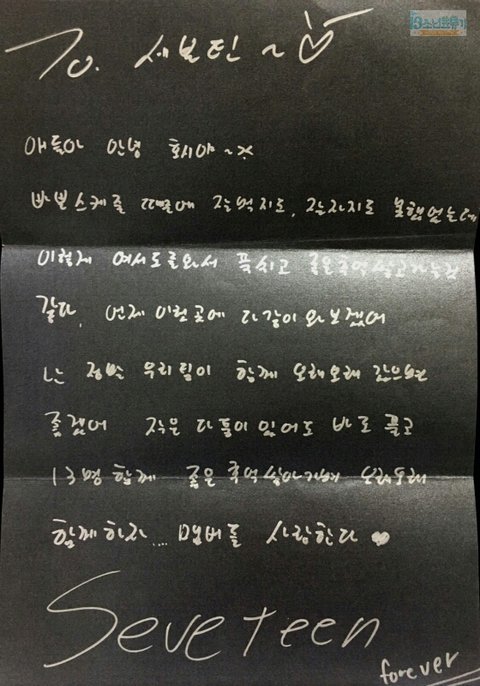 To. 세븐틴 ~
애들아 안녕 호시야~
바쁜스케줄 때문에 잘먹지도, 잠자지도 못했었는데
이렇게 여서도를와서 푹쉬고 좋은추억쌓고가는것
같다, 언제 이런곳에 다같이 와보겠어
나는 정말 우리팀이 함께 오래오래 갔으면
좋겠어 작은 다툼이 있어도 바로 풀고
13명 함께 좋은 추억 쌓아가며 오래오래
함께하자.... 멤버들 사랑한다
Seveteen
forever